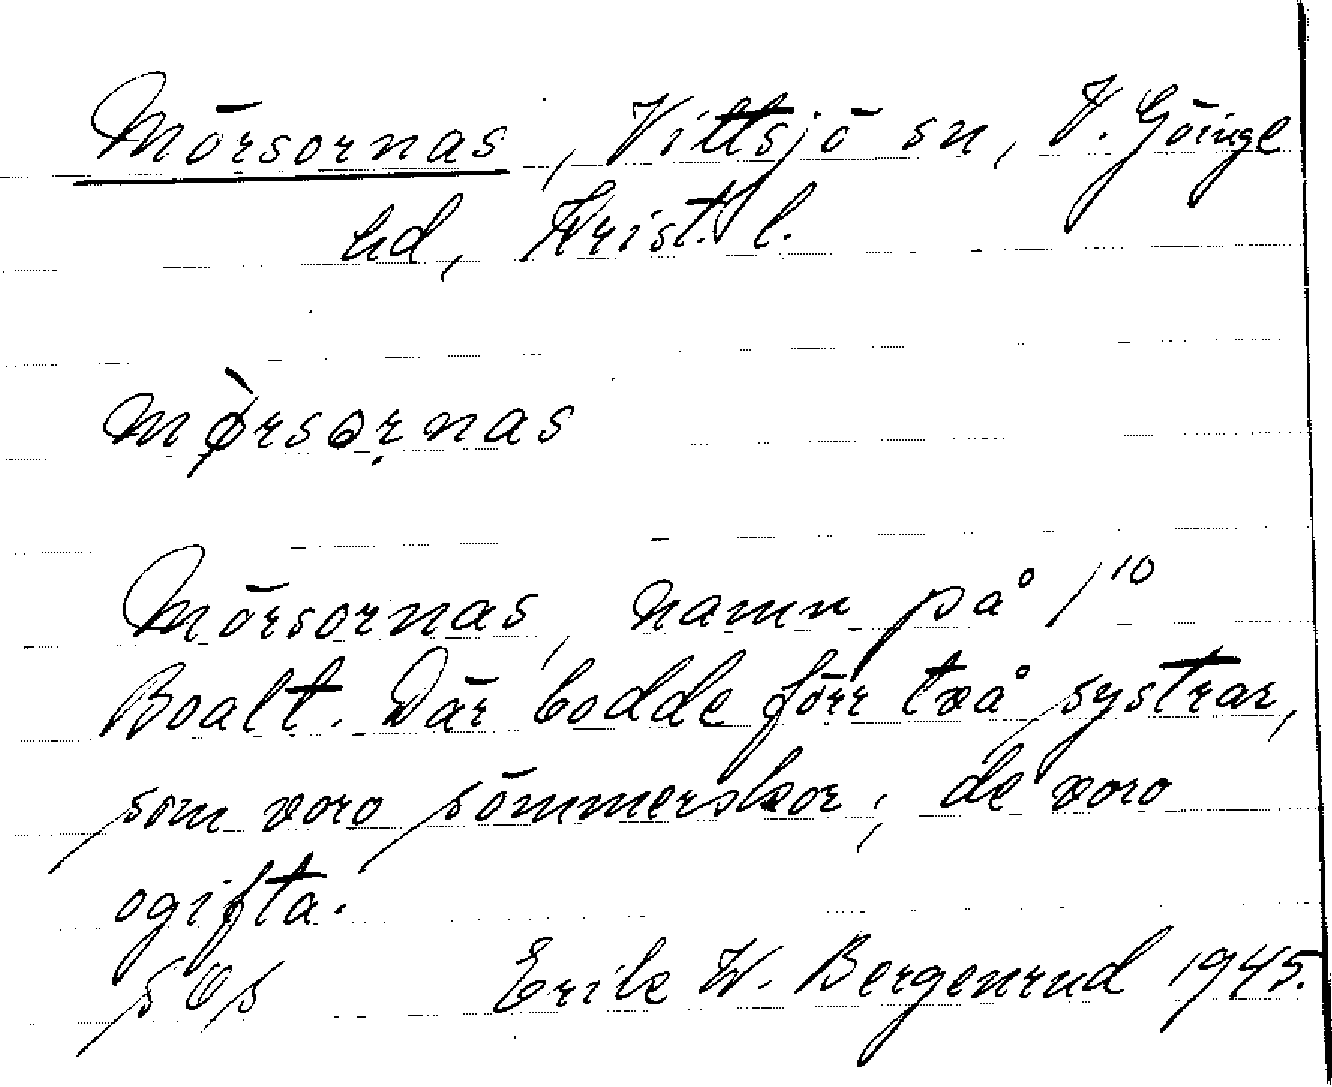 Mörsornas, Vittsjö sn, V. Göinge
hd, Krist. l.
mø̀rsoṛnas
Mörsornas, namn på 1¹⁰
Boalt. Där bodde förr två systrar,
som voro sömmerskor; de voro
ogifta.
Erik W. Bergenrud 1945.